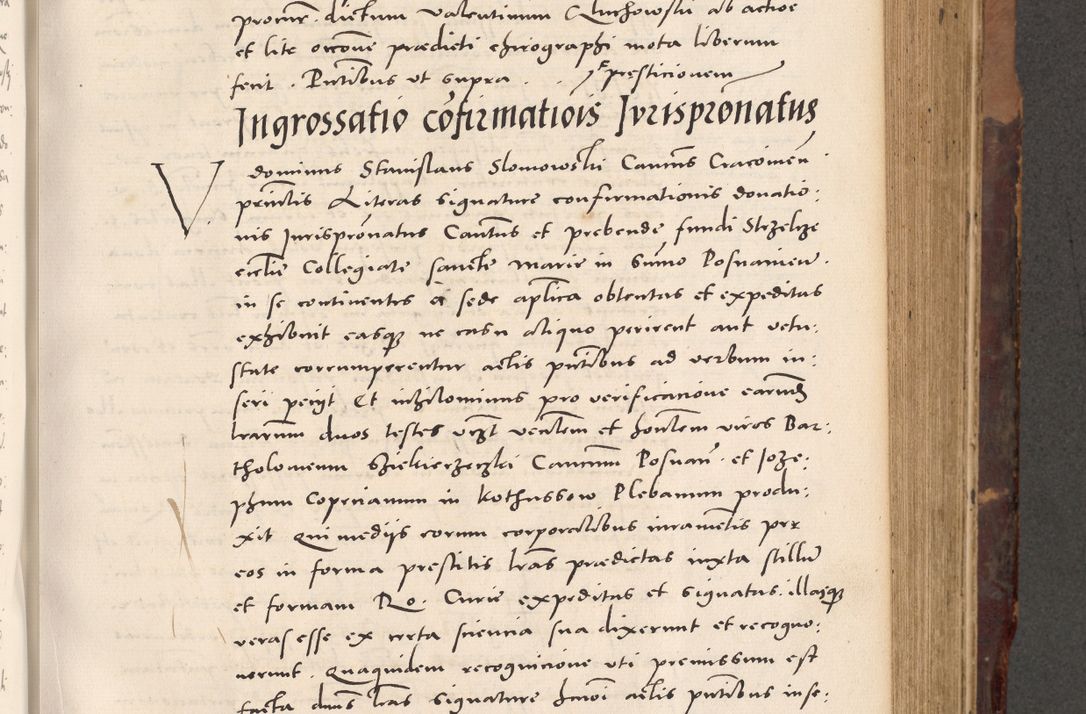 procur. dictum Valentinum Cluchowski ab actioe
et lite occone praedicti chirographi mota liberum
fecit. Pntibus ut supra. presticionem
Ingrossatio cofirmatiois Jurispronatus
V. dominus Stanislaus Slomowski Canus Cracovien
prntis Literas signature confirmationis donatio:
nis Jurispronatus Cantus et prebende fundi Strzelcze
eccltie Collegiate sancte marie in Sumo Posnanien.
in se continentes a sede aplica obtentas et expeditas
exhibuit easque ne casu aliquo perirent aut vetu:
state corrumperentur actis pntibus ad verbum in:
seri petijt Et nihilominus pro verificacione earund
lrarum duos testes vczt ventem et hontem viros Bar:
tholomeum Sziekierzeczki Canum Posnan. et Joze:
phum Coprnanum in Kothussow Plebanum produ:
xit Qui medijs eorum corporalibus iuramentis per
eos in forma prestitis lras praedictas iuxta stillu
et formam Ro. Curie expeditas et signatas. illasque
veras esse ex certa sciencia sua dixerunt et recogno:
verunt. Quaquidem recognicione uti premissum est
facta duas lras signature hmoi actis pntibus inse: